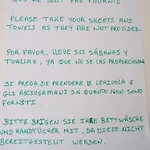 PLEASE TAKE YOUR SHEETS AND
TOWELS AS THEY ARE NOT PROVIDED.
POR FAVOR, LLEVE SUS SÁBANAS Y
TOALLAS, YA QUE NO SE LAS PROPORCIONAN
SI PREGA DI PRENDERE LE LENZUOLA E
GLI ASCIUGAMANI IN QUANTO NON SONO
FORNITI.
BITTE BRINGEN SIE IHRE BETTWÄSCHE
UND HANDTÜCHER MIT, DA DIESE NICHT
BEREITGESTELLT WERDEN.